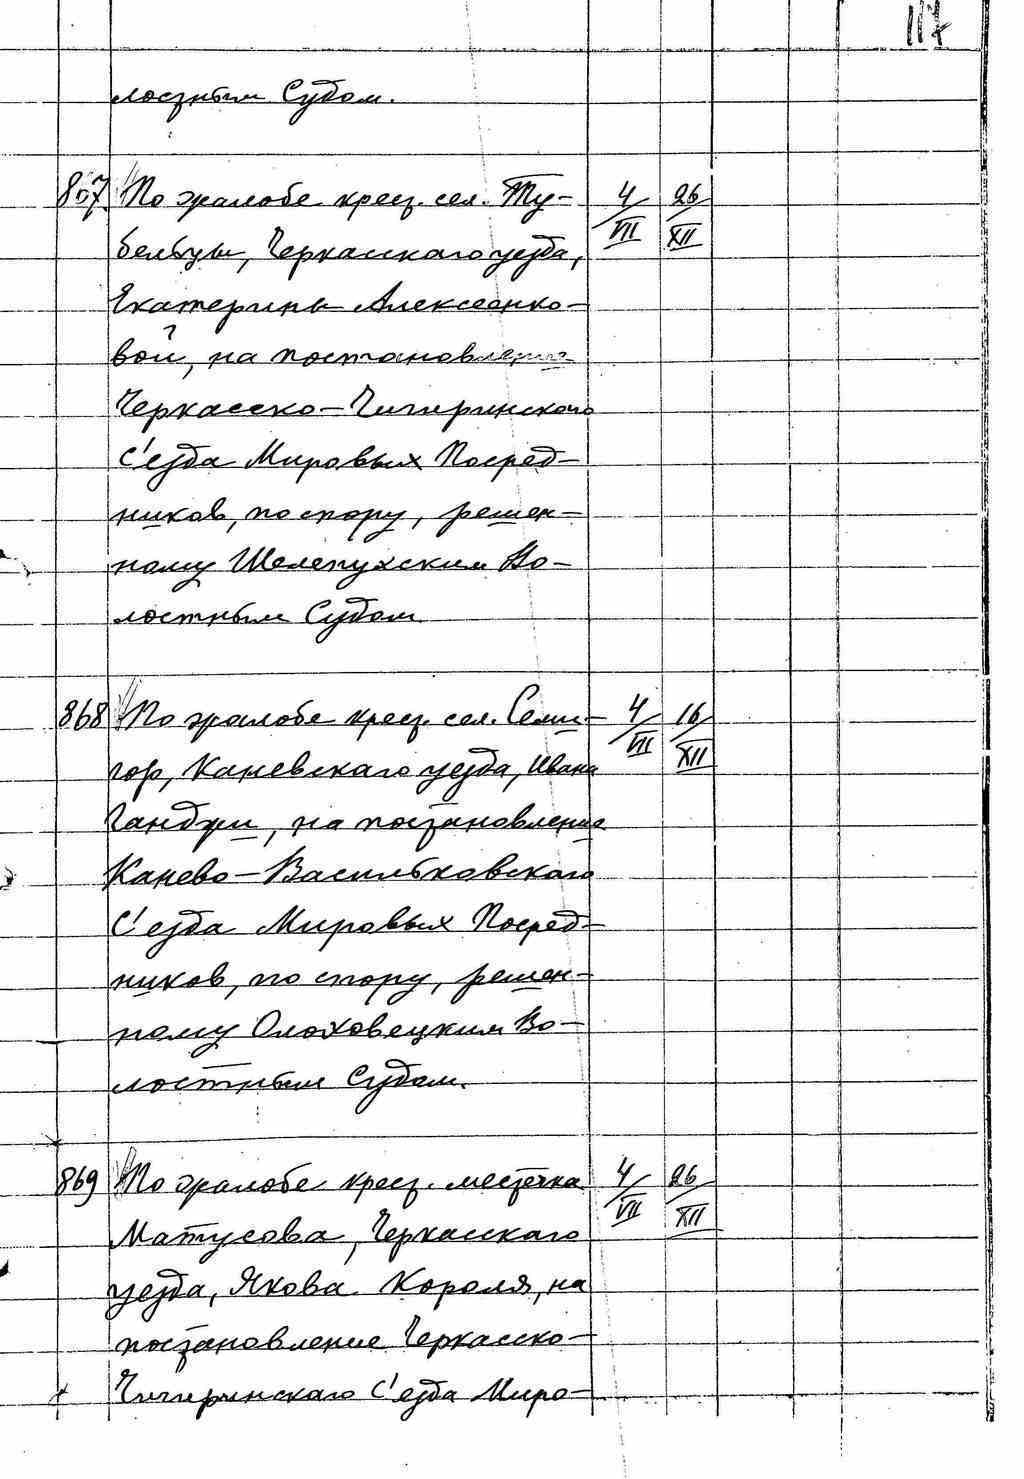 117
лостным Судом.
867 По жалобе крест. сел. Ту- 4/VII 26/XII
бельцы, Черкасскаго уезда,
Екатерины Алексеенко-
вой, на постановление
Черкасско-Чигиринскаго
С'езда Мировых Посред-
ников, по спору, решен-
ному Шелепухским Во-
лостным Судом
868 По жалобе крест. сел. Семи- 4/VII 16/XII
гор, Каневскаго уезда, Ивана
Гандзи, на постановление
Канево-Васильковскаго
С'езда Мировых Посред-
ников, по спору, решен-
ному Ольховецким Во-
лостным Судом.
869 По жалобе крест. местечка 4/VII 26/XII
Матусова, Черкасскаго
уезда, Якова Короля, на
постановление Черкасско-
Чигиринскаго С'езда Миро-